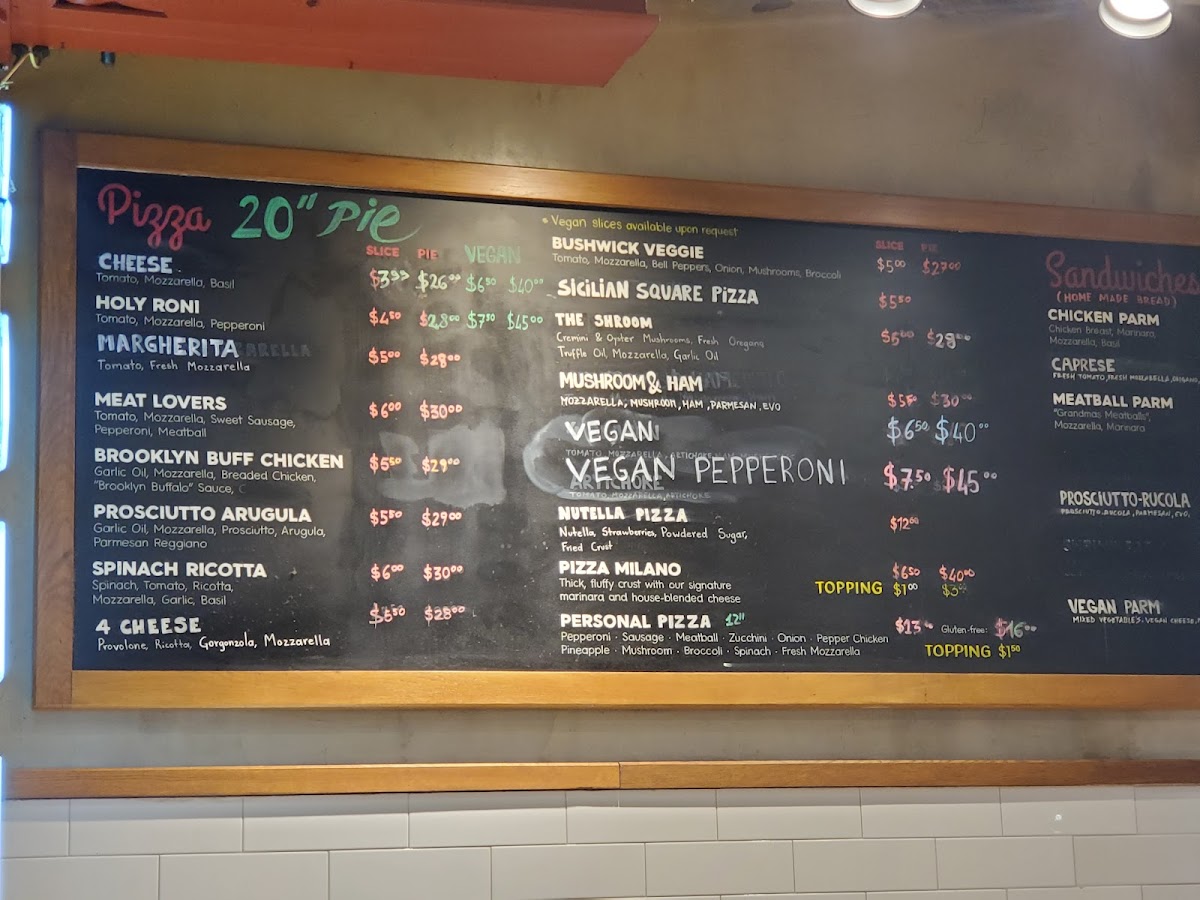 Pizza 20" Pie
SLICE PIE VEGAN
CHEESE $3.99 $26.00 $6.50 $40.00
Tomato, Mozzarella, Basil
HOLY RONI $4.50 $28.00 $7.50 $45.00
Tomato, Mozzarella, Pepperoni
MARGHERITA $5.00 $28.00
Tomato, Fresh Mozzarella
MEAT LOVERS $6.00 $30.00
Tomato, Mozzarella, Sweet Sausage,
Pepperoni, Meatball
BROOKLYN BUFF CHICKEN $5.50 $29.00
Garlic Oil, Mozzarella, Breaded Chicken,
"Brooklyn Buffalo" Sauce,
PROSCIUTTO ARUGULA $5.50 $29.00
Garlic Oil, Mozzarella, Prosciutto, Arugula,
Parmesan Reggiano
SPINACH RICOTTA $6.00 $30.00
Spinach, Tomato, Ricotta,
Mozzarella, Garlic, Basil
4 CHEESE $28.00
Provolone, Ricotta, Gorgonzola, Mozzarella
* Vegan slices available upon request
SLICE PIE
BUSHWICK VEGGIE $5.00 $27.00
Tomato, Mozzarella, Bell Peppers, Onion, Mushrooms, Broccoli
SICILIAN SQUARE PIZZA $5.50
THE SHROOM $28.00
Cremini & Oyster Mushrooms, Fresh Oregano
Truffle Oil, Mozzarella, Garlic Oil
MUSHROOM & HAM $30.00
MOZZARELLA, MUSHROOM, HAM, PARMESAN, EVO
VEGAN $6.50 $40.00
TOMATO MOZZARELLA, ARTICHOKE
VEGAN PEPPERONI $7.50 $45.00
ARTICHOKE
TOMATO MOZZARELLA, ARTICHOKE
NUTELLA PIZZA $12.00
Nutella, Strawberries, Powdered Sugar,
Fried Crust
PIZZA MILANO $6.50 $40.00
Thick, fluffy crust with our signature
marinara and house-blended cheese
TOPPING $1.00
PERSONAL PIZZA 12" Gluten-free: $16.00
Pepperoni · Sausage · Meatball · Zucchini · Onion · Pepper Chicken
Pineapple · Mushroom · Broccoli · Spinach · Fresh Mozzarella
TOPPING $1.50
Sandwiches
(HOME MADE BREAD)
CHICKEN PARM
Chicken Breast, Marinara,
Mozzarella, Basil
CAPRESE
FRESH TOMATO, FRESH MOZZARELLA, OREGANO,
MEATBALL PARM
"Grandmas Meatballs",
Mozzarella, Marinara
PROSCIUTTO-RUCOLA
PROSCIUTTO, RUCOLA, PARMESAN, EVO.
VEGAN PARM
MIXED VEGETABLES, VEGAN CHEESE,